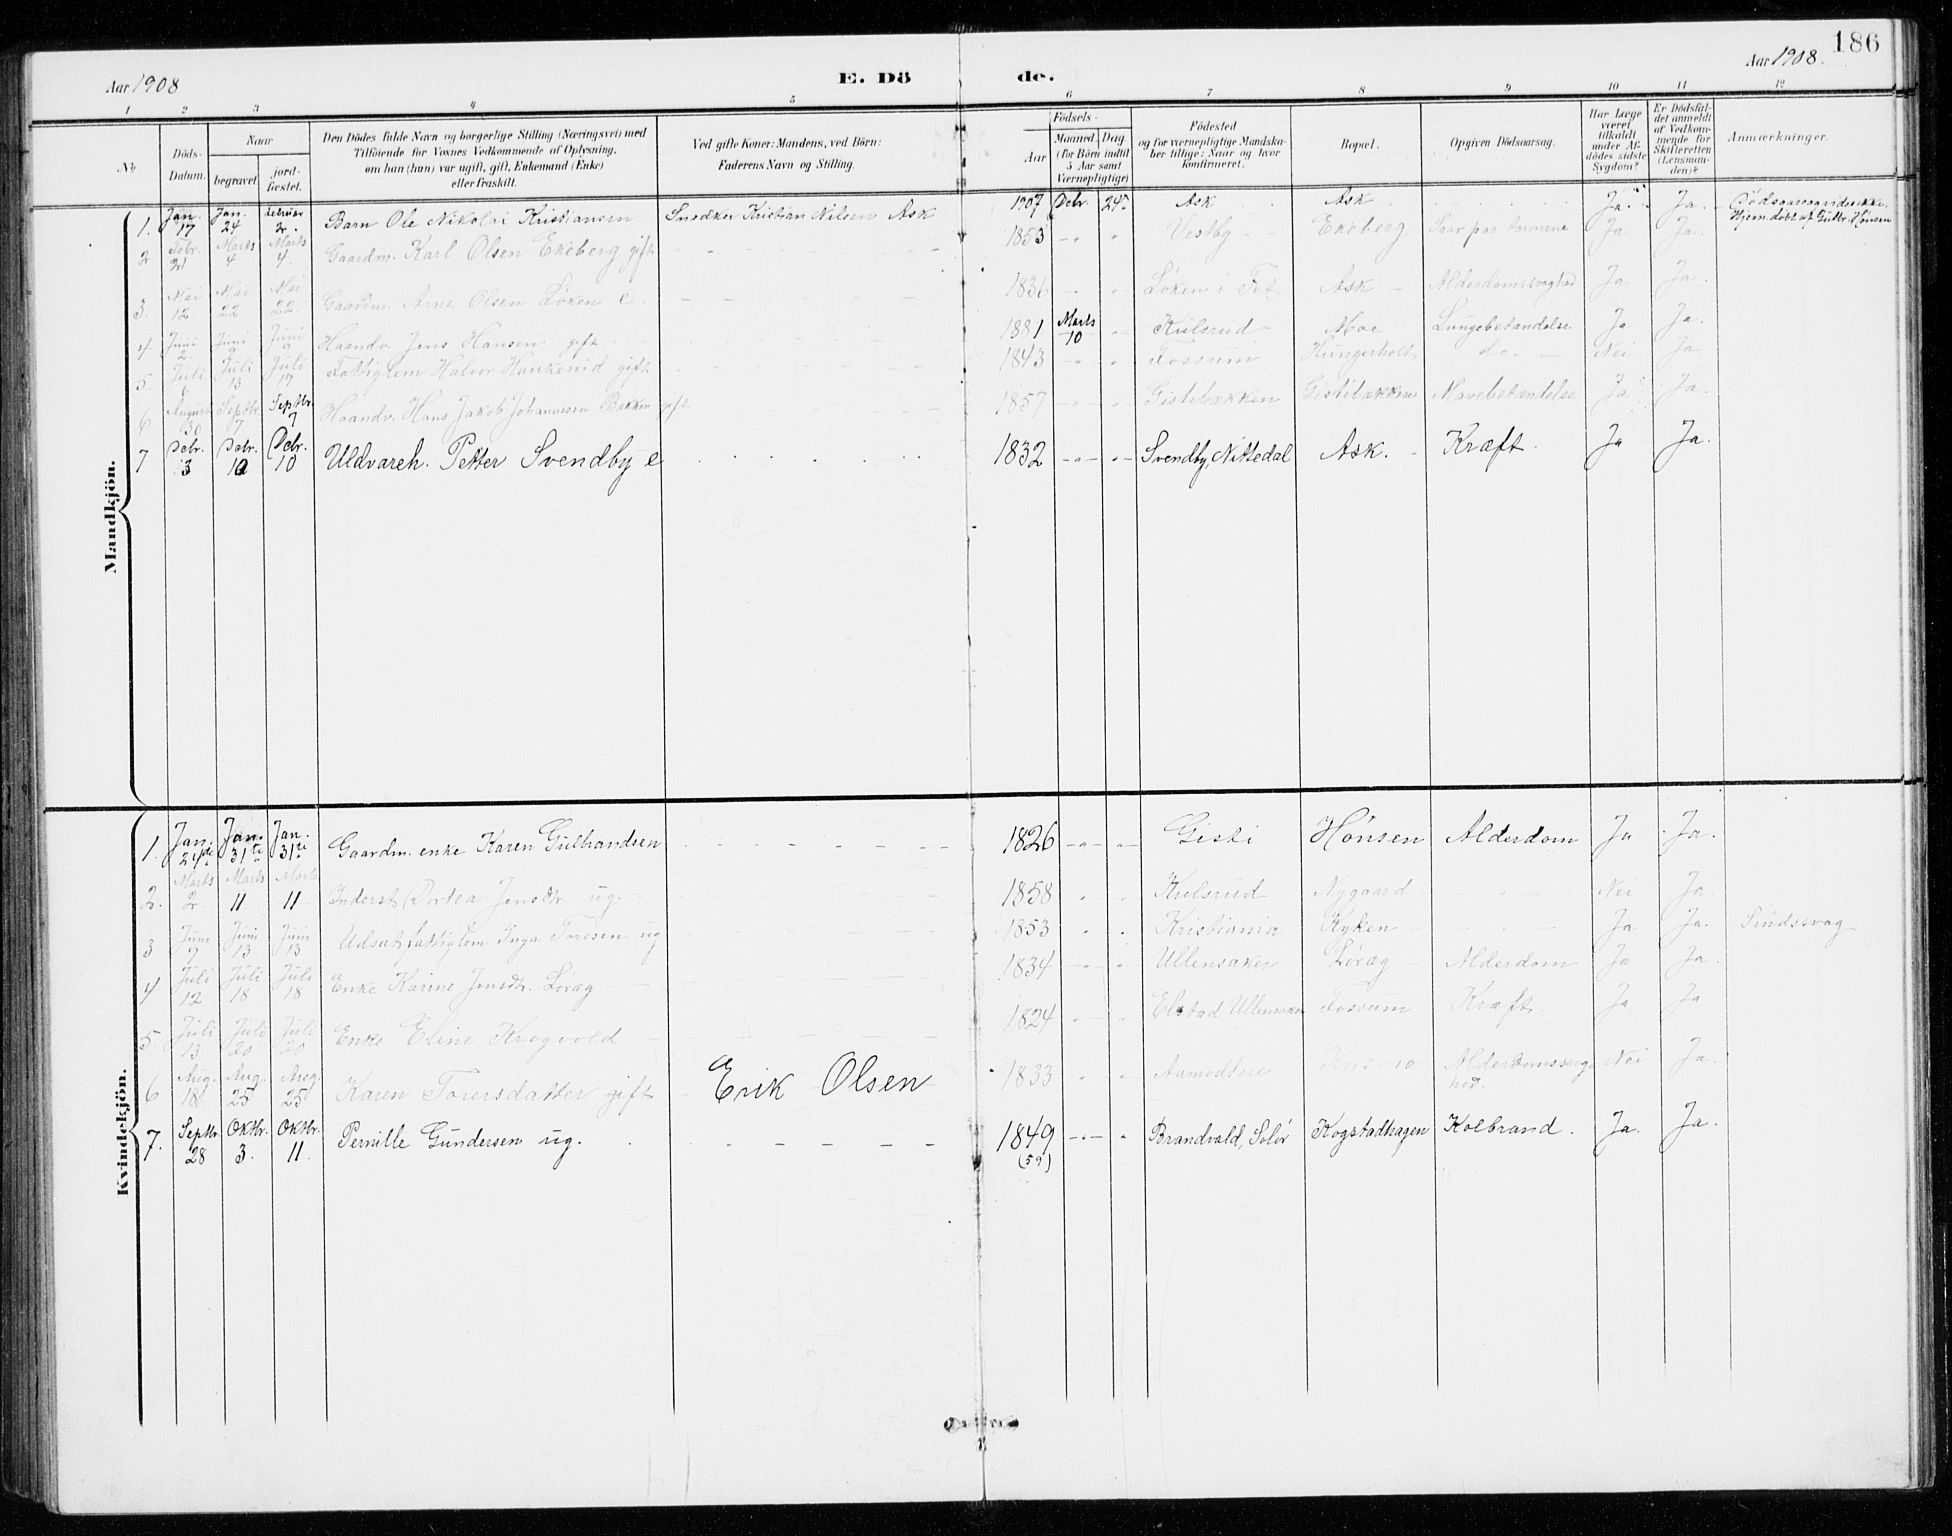 186
Aar 1908
E. Dö de.
Aar 1908.
1 2 3 4 5 6 7 8 9 10 11 12
No
Döds-Datum.
Naar
begravet.
jord-fæstet.
Den Dödes fulde Navn og borgerlige Stilling (Næringsvei) med
Tilföiende for Voxnes Vedkommende af Oplysning,
om han (hun) var ugift, gift, Enkemand (Enke)
eller fraskilt.
Ved gifte Koner: Mandens, ved Börn:
Faderens Navn og Stilling.
Födsels-
Aar
Maaned. Dag
(for Börn indtil
5 Aar samt
Værnepligtige)
Födested
og for værnepligtige Mandska-
ber tillige: Naar og hvor
konfirmeret.
Bopæl.
Opgiven Dödsaarsag.
Har Læge
været
tilkaldt
under Af-
dödes sidste
Sygdom?
Er Dödsfal-
det anmeldt
af Vedkom-
mende for
Skifteretten
(Lensman-
den)?
Anmærkninger.
Mandkjön.
1. Jan. 17 Jan. 24 Februar 2. Barn Ole Nikolai Kristiansen Snedker Kristian Nilsen Ask 1907 Debr. 24 Ask Ask Ja Ja Hjemdöbt af Gulbr. Hönsen
2. Febr. 21 Marts 4 Marts 4. Gaardm. Karl Olsen Ekeberg gift 1853 Vestby Ekeberg Saar paa tarmene Ja Ja.
3. Mai 12 Mai 22 Mai 22. Gaardm. Arne Olsen Löken e. 1836 Löken i Fet Ask Alderdomssvaghed Ja Ja.
4 Juni 2 Juni 9 Juni 9 Haandv. Jens Hansen gift 1881 Marts 10 Kulsrud Moe Lungebetændelse Ja Ja.
5. Juli 6 Juli 13 Juli 19 Fattiglem Halvor Haukerud gift 1843 Fossum Hungerholt do. Nei Ja
6 August 30 Septbr. 7 Septbr. 7 Haandv. Hans Jakob Johannesen Bækken gift 1857 Gistibækken Gistibækken Mavebetændelse Ja Ja.
7 Debr. 3 Debr. 10 Debr. 10 Uldvareh. Petter Svendby e 1832 Svendby, Nittedal Ask. Kræft. Ja Ja.
Kvindekjön.
1. Jan. 24de Jan. 31te Jan. 31te Gaardm. enke Karen Gulbrandsen 1826 Gisti Hönsen Alderdom Ja Ja.
2. Marts 2. Marts 11 Marts 11 Inderst Dortea Jensdtr. ug. 1858 Kulsrud Nygaard Nei Ja.
3 Juni 9 Juni 13 Juni 13 Udsat fattiglem Inga Toresen ug 1853 Kristiania Kyken Ja Ja. Sindssvag
4 Juli 12 Juli 18 Juli 18 Enke Karine Jensdtr. Löræg 1834 Ullensaker Löræg Alderdom Ja Ja.
5. Juli 13 Juli 20 Juli 20 Enke Eline Krogvold 1824 Elstad Ullensaker Fossum Kræft. Ja Ja
6 Aug. 18 Aug. 25 Aug. 25 Karen Toversdatter gift Erik Olsen 1833 Aamodtere Korsmo Alderdomssvaghed. Nei Ja.
7. Septbr. 28 Oktbr. 3. Oktbr. 11. Pernille Gundersen ug. 1849 (59) Brandvold, Solör Kogstadhagen Kolbrand. Ja. Ja.